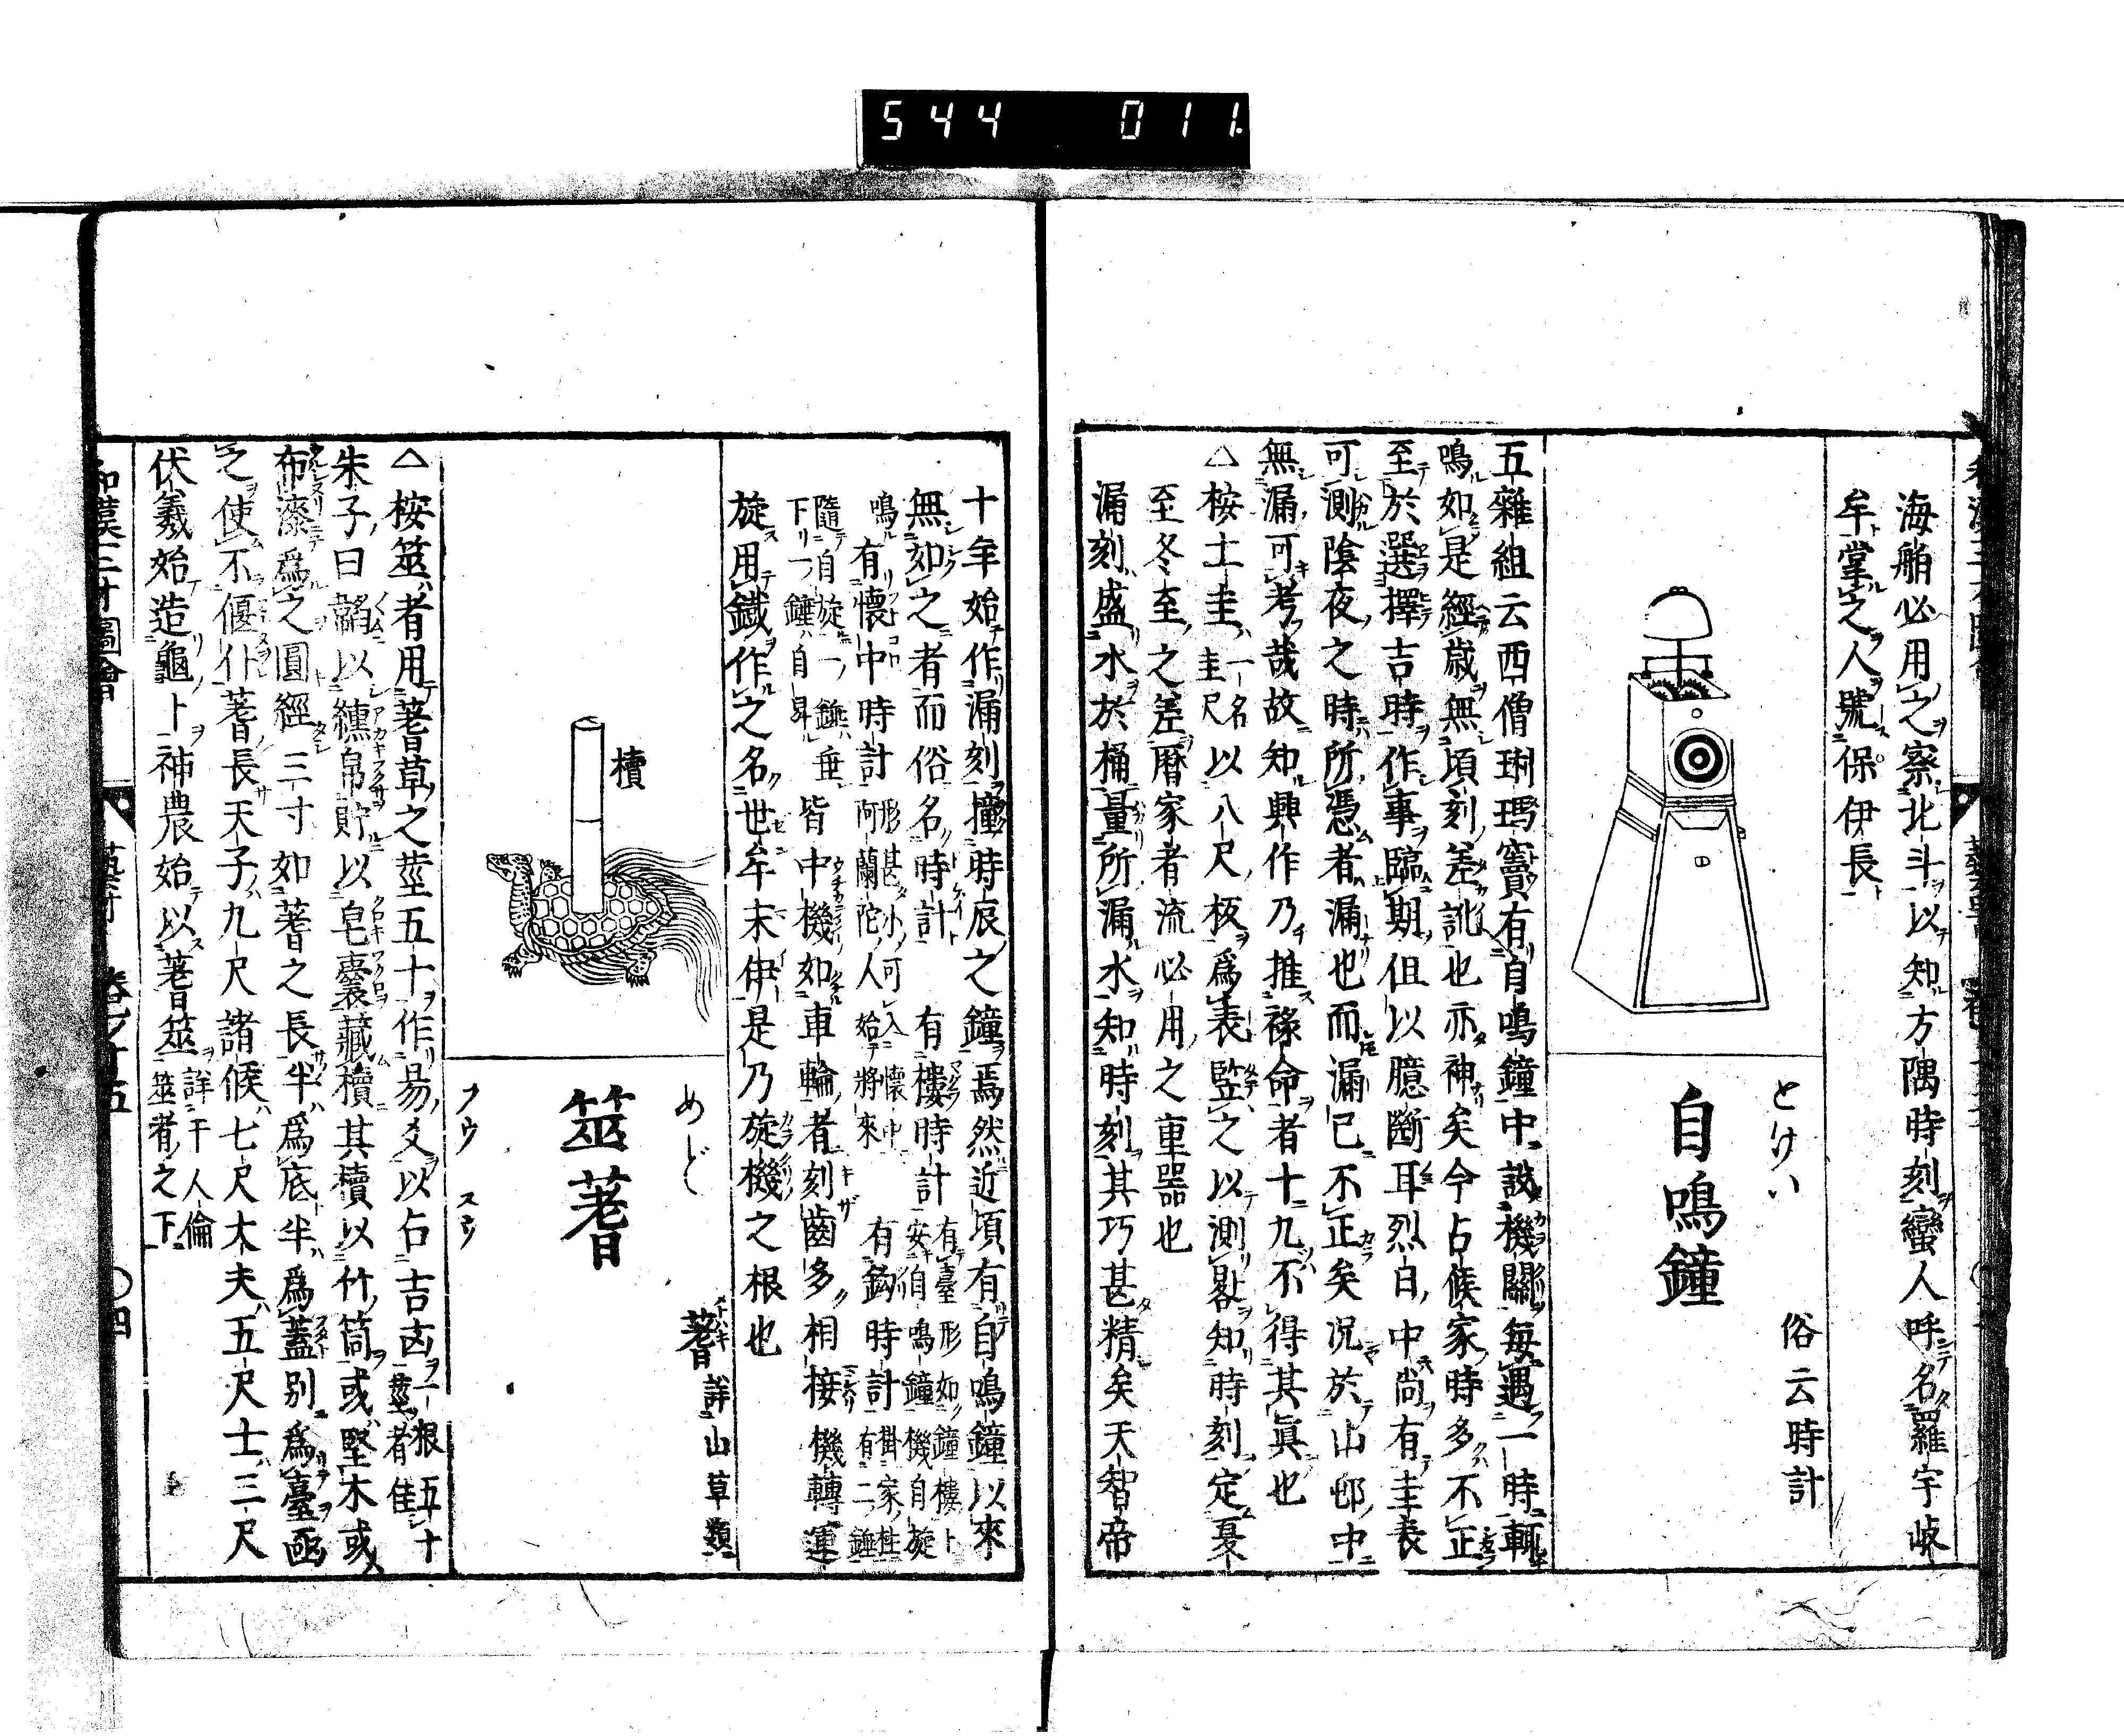 544 011
海舶必用之察北斗以知方隅時刻蠻人呼名羅宇岐
牟掌之人號保伊長
とけい
自鳴鐘
俗云時計
五雜組云西僧琍瑪竇有自鳴鐘中設機關每遇一時輒
鳴如是經歲無頃刻差訛也亦神矣今占候家時多不正
至於選擇吉時作事臨期但以臆斷耳烈日中尚有圭表
可測陰夜之時所憑者漏也而漏已不正矣況於山邨中
無漏可考哉故知興作乃推祿命者十九不得其眞也
△桉土圭一名圭尺以八尺板爲表竪之以測晷知時刻定夏
至冬至之差曆家者流必用之重器也
漏刻盛水於桶量所漏水知時刻其巧甚精矣天智帝
十年始作漏刻撞時辰之鐘焉然近頃有自鳴鐘以來
無如之者而俗名時計 有樓時計有臺形如鐘樓卜安自鳴鐘機自旋
鳴有懷中時計形甚小可入懷中阿蘭陀人始將來 有鈎時計掛家柱有二錘
隨自旋一錘垂下一錘自昇皆中機如車輪者刻齒多相接機轉運
旋用鐵作之名世牟末伊是乃旋機之根也
櫝
めど
筮蓍
フウ スウ
蓍詳山草類
△桉筮者用蓍草之莖五十作易爻以占吉凶一根五十莖者佳
朱子曰韜以纁帛貯以皂囊藏櫝其櫝以竹筒或堅木或
布漆爲之圓經三寸如蓍之長半爲底半爲蓋別爲臺函
之使不偃仆蓍長天子九尺諸候七尺大夫五尺士三尺
伏羲始造龜卜神農始以蓍筮詳于人倫筮者之下
和漢三才圖會 藝財 卷之十五 〇四